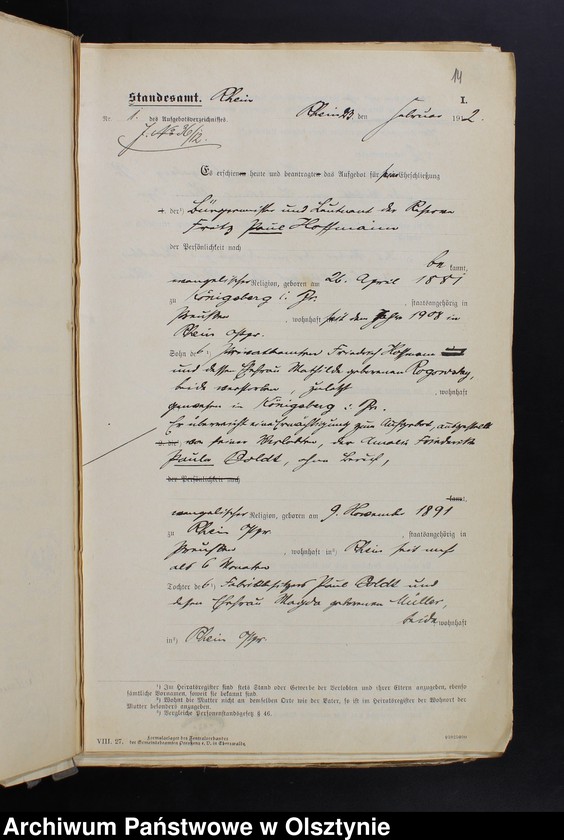 14
Standesamt. Rhein
I.
Nr. 1. des Aufgebotsverzeichnisses
Rhein 23. den Februar 1912.
J. No 36/12.
Es erschienen heute und beantragten das Aufgebot für Eheschließung
1. der¹) Bürgermeister und Leutnant der Reserve
Fritz Paul Hoffmann
der Persönlichkeit nach
be kannt,
evangelischer Religion, geboren am 26. April 1881
zu Königsberg i. Pr. , staatsangehörig in
Preußen , wohnhaft seit dem Jahre 1908 in
Rhein Ostpr.
Sohn des ¹) Privatbeamten Friedrich Hoffmann
und dessen Ehefrau Mathilde geborenen
beide verstorben, zuletzt , wohnhaft
gewesen in Königsberg i. Pr.
Er überreicht eine Ermächtigung zum Aufgebot, ausgestellt
2. die von seiner Verlobten, der Amalie Friederike
Paula Boldt, ohne Beruf,
der Persönlichkeit nach
kannt,
evangelischer Religion, geboren am 9. November 1891
zu Rhein Ostpr , staatsangehörig in
Preußen , wohnhaft in²) Rhein seit mehr
als 6 Monaten
Tochter des ¹) Fabrikbesitzers Paul Boldt und
dessen Ehefrau Magda geborenen Müller,
beide wohnhaft
in³) Rhein Ostpr
¹) Im Heiratsregister sind stets Stand oder Gewerbe der Verlobten und ihrer Eltern anzugeben, ebenso
sämtliche Vornamen, soweit sie bekannt sind.
²) Wohnt die Mutter nicht an demselben Orte wie der Vater, so ist im Heiratsregister der Wohnort der
Mutter besonders anzugeben.
³) Vergleiche Personenstandsgesetz § 46.
VIII. 27. Formularlager des Zentralverbandes
der Gemeindebeamten Preußens e. V. in Eberswalde
Archiwum Państwowe w Olsztynie